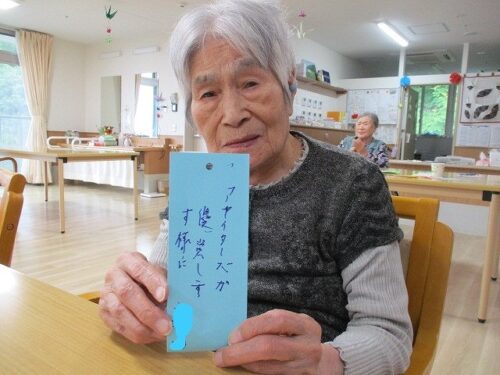 ファイターズが
優勝しま
す様に